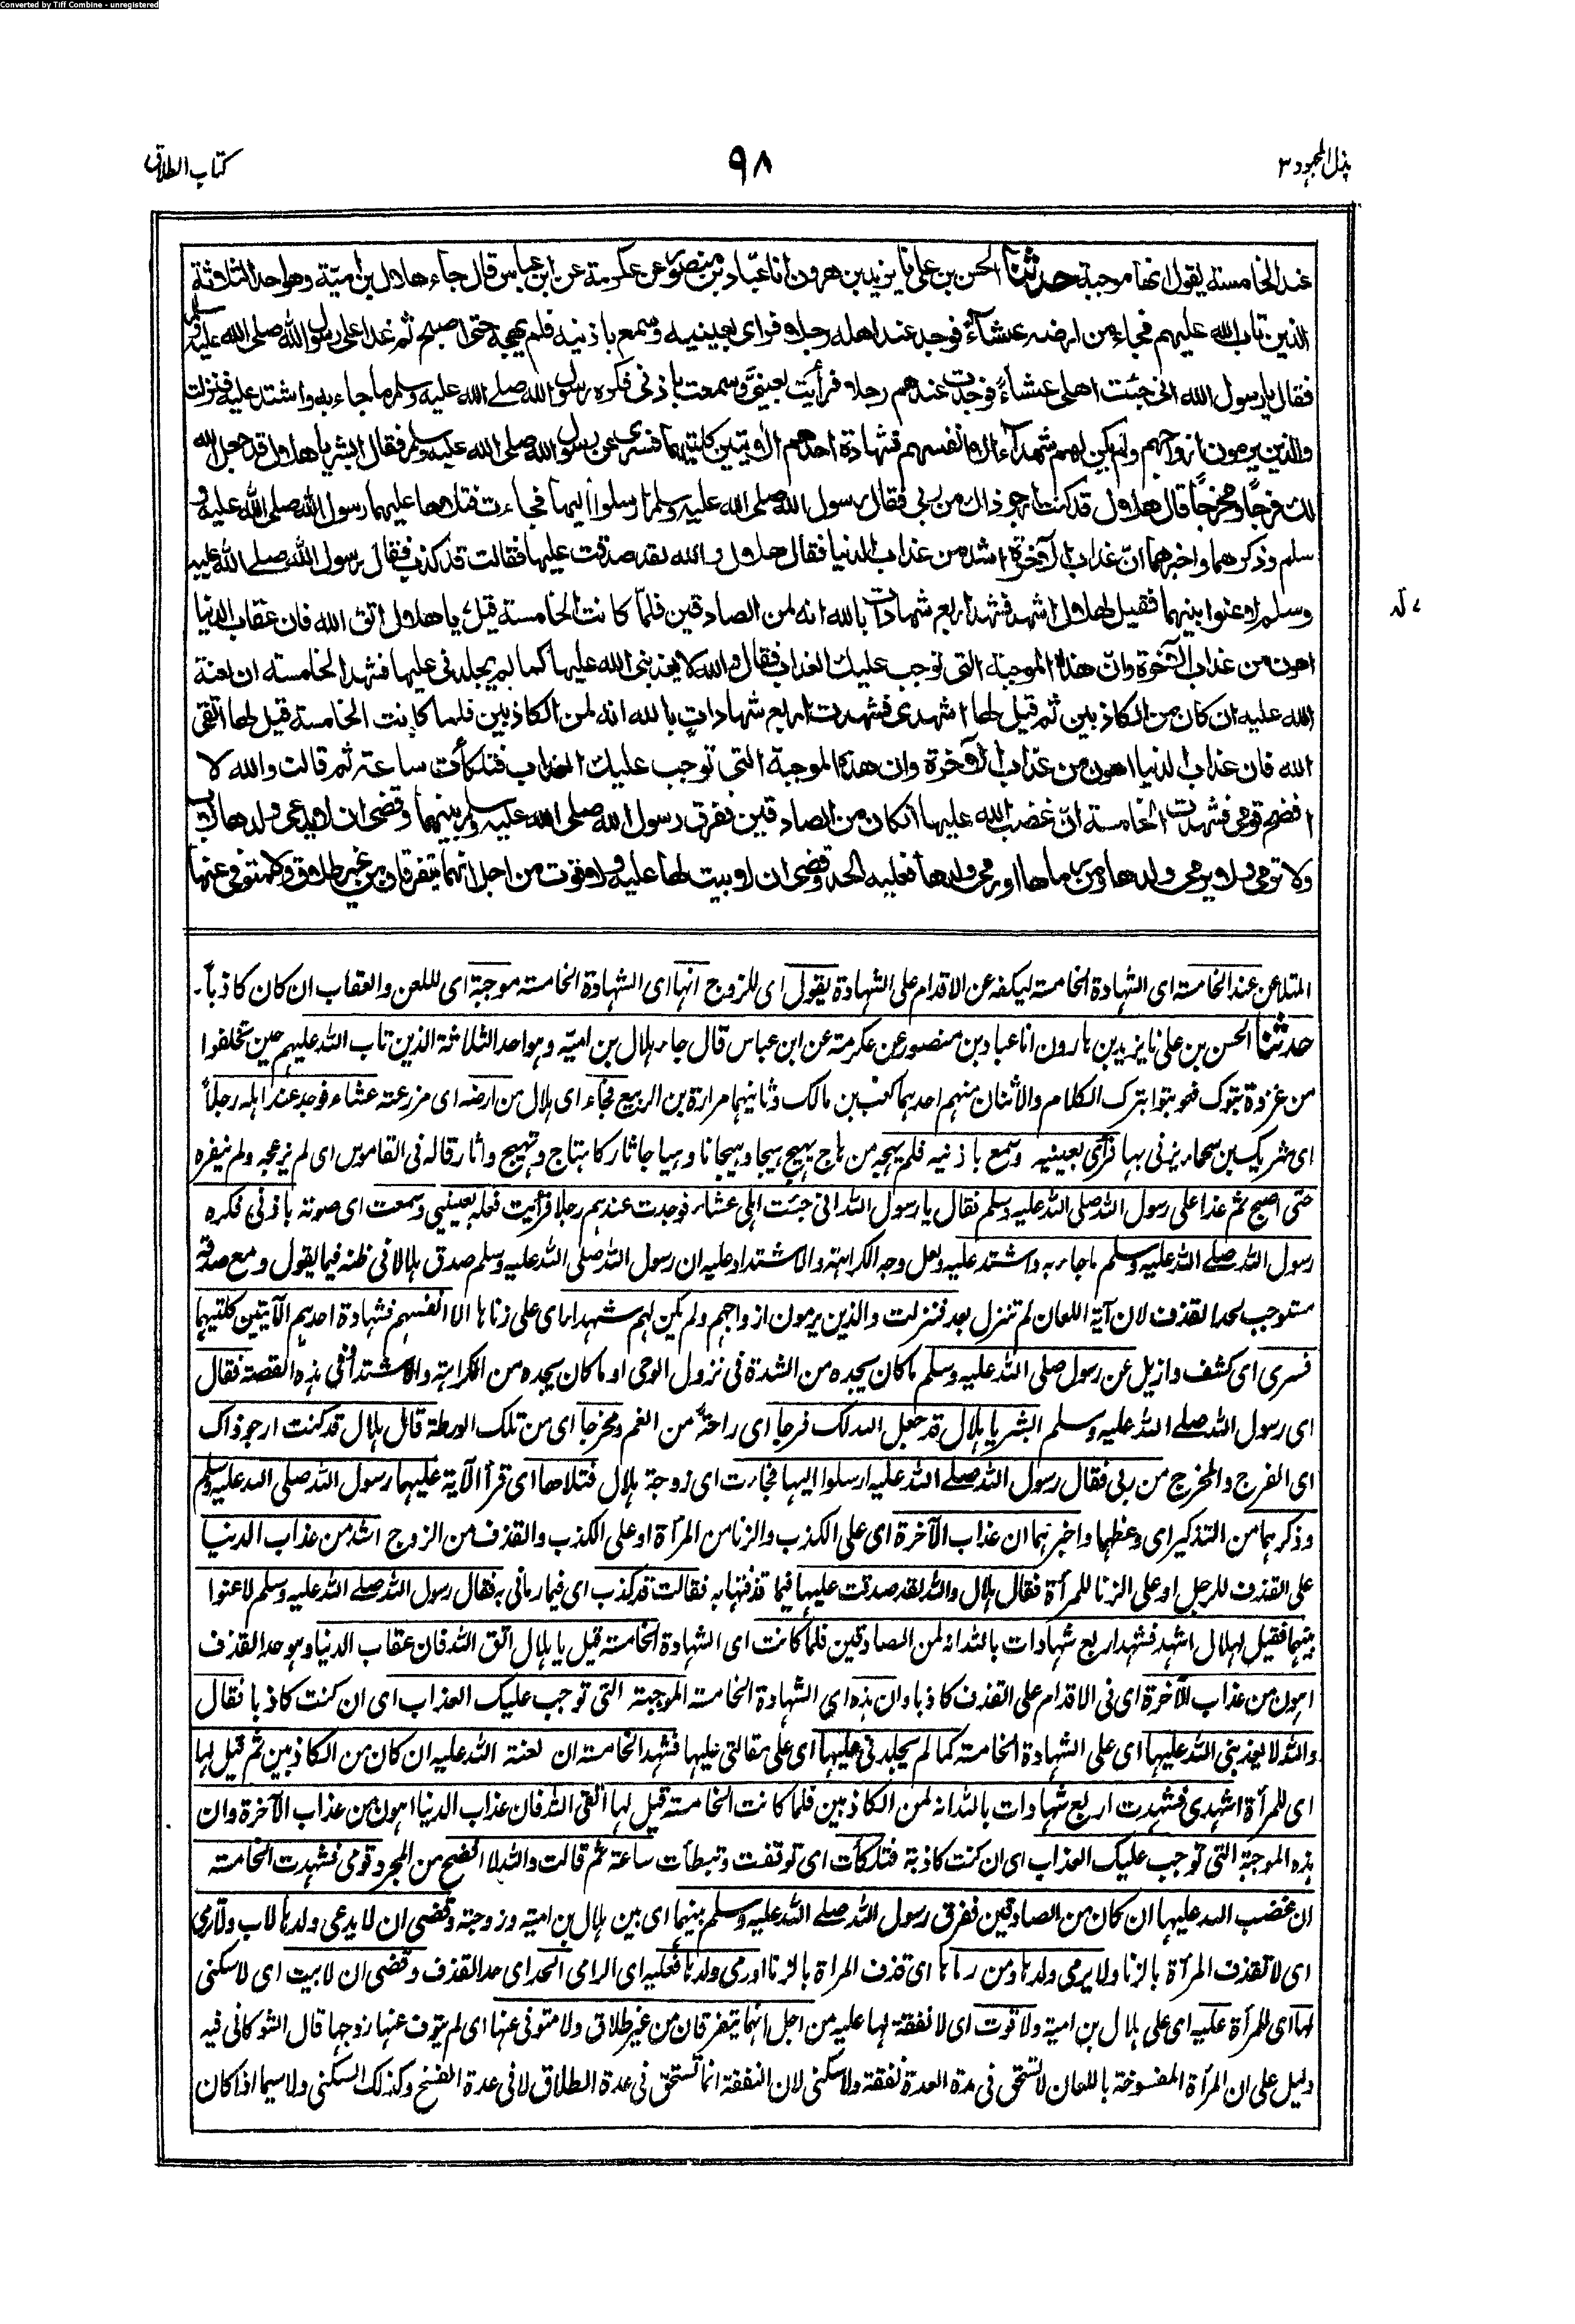 Converted by Tiff Combine - unregistered
بذل المجہود ۳
۹۸
کتاب الطلاق
عند الخامسة يقول انها موجبة حدثنا الحسن بن على نا يزيد بن هرون انا عبّاد بن منصور عن عكرمة عن ابن عباس قال جاء هلال بن اميّة وهو احد الثلاثة
الذين تاب الله عليهم فجاء من ارضه عشآءً فوجد عند اهله رجلا فراى بعينيه وسمع باذنيه فلم يهجه حتى اصبح ثم غدا على رسول الله صلى الله عليه وسلم
فقال يا رسول الله انى جئت اهلى عشاءً فوجدت عندهم رجلا فرأيت بعينيّ وسمعت باذنى فكره رسول الله صلے الله عليه وسلم ما جاء به واشتد عليه فنزلت
والذين يرمون ازواجهم ولم يكن لهم شهدآء الا انفسهم فشهادة احدهم الآيتين كلتيهما فسرى عن رسول الله صلى الله عليه وسلم فقال ابشر يا هلال قد جعل الله
لك فرجًا ومخرجًا قال هلال قد كنت ارجو ذاك من ربى فقال رسول الله صلى الله عليه وسلم ارسلوا اليها فجاءت فتلاها عليهما رسول الله صلى الله عليه و
سلم وذكرهما واخبرهما انّ عذاب الآخرة اشد من عذاب الدنيا فقال هلال والله لقد صدقت عليها فقالت قد كذب فقال رسول الله صلے الله عليه
وسلم لاعنوا بينهما فقيل لهلال اشهد فشهد اربع شهادات بالله انه لمن الصادقين فلمّا كانت الخامسة قيل يا هلال اتق الله فان عقاب الدنيا
اهون من عذاب الآخرة وانّ هذه الموجبة التى توجب عليك العذاب فقال والله لا يعذبنى الله عليها كما لم يجلدنى عليها فشهد الخامسة ان لعنة
الله عليه ان كان من الكاذبين ثم قيل لها اشهدى فشهدت اربع شهاداتٍ بالله انه لمن الكاذبين فلما كانت الخامسة قيل لها اتقى
الله فان عذاب الدنيا اهون من عذاب الآخرة وان هذه الموجبة التى توجب عليك العذاب فتلكأت ساعة ثم قالت والله لا
افضح قومى فشهدت الخامسة انّ غضب الله عليها ان كان من الصادقين ففرق رسول الله صلى الله عليه وسلم بينهما وقضى ان لا يدعى ولدها لاب
ولا ترمى ولا يرمى ولدها ومن رماها او رمى ولدها فعليه الحد وقضى ان لا بيت لها عليه ولا قوت من اجل انهما يتفرقان من غير طلاق ولا متوفى عنها
المتلاعن عند الخامسة اى الشهادة الخامسة ليكفه عن الاقدام على الشهادة يقول اى للزوج انها اى الشهادة الخامسة موجبة اى لللعن والعقاب ان كان كاذباً۔
حدثنا الحسن بن على نا يزيد بن ہارون انا عباد بن منصور عن عكرمة عن ابن عباس قال جاء ہلال بن اميّة وہو احد الثلاثة الذين تاب اللہ عليهم حين تخلفوا
من غزوة تبوك فعوتبوا بترك الكلام والاثنان منهم احدہما كعب بن مالك وثانيهما مرارة بن الربيع فجاء اى ہلال من ارضه اى مزرعته عشاء فوجد عند اہله رجلاً
اى شريك بن سحماء يزنى بها فرأى بعينيه وسمع باذنيه فلم يهجه من ہاج يهيج هيجا وهيجانا وهياجا ثار كاہتاج وتهيج واثار قاله فى القاموس اى لم يزعجه ولم ينفره
حتى اصبح ثم غدا على رسول اللہ صلى اللہ عليه وسلم فقال يا رسول اللہ انى جئت اہلى عشاء فوجدت عندہم رجلا فرأيت فعله بعينيى وسمعت اى صوته باذنى فكره
رسول اللہ صلے اللہ عليه وسلم ما جاء به واشتد عليه ولعل وجه الكراہة والاشتداد عليه ان رسول اللہ صلى اللہ عليه وسلم صدق ہلالا فى ظنه فيما يقول ومع صدقه
مستوجب لحد القذف لان آية اللعان لم تنزل بعد فنزلت والذين يرمون ازواجهم ولم يكن لہم شهداء اى على زناہا الا انفسهم فشهادة احدہم الآيتين كلتيهما
فسرى اى كشف وازيل عن رسول صلى اللہ عليه وسلم ما كان يجده من الشدة فى نزول الوحى او ما كان يجده من الكراہة والاشتداد فى ہذہ القصة فقال
اى رسول اللہ صلے اللہ عليه وسلم ابشر يا ہلال قد جعل اللہ لك فرجا اى راحةً من الغم ومخرجا اى من تلك الورطة قال ہلال قد كنت ارجو ذاك
اى الفرج والمخرج من ربى فقال رسول اللہ صلے اللہ عليه ارسلوا اليها فجاءت اى زوجة ہلال فتلاها اى قرأ الآية عليهما رسول اللہ صلى اللہ عليه وسلم
وذكرہما من التذكير اى وعظهما واخبرہما ان عذاب الآخرة اى على الكذب والزنا من المرأة او على الكذب والقذف من الزوج اشد من عذاب الدنيا
على القذف للرجل او على الزنا للمرأة فقال ہلال واللہ لقد صدقت عليها فيما قذفتها به فقالت قد كذب اى فيما رمانى به فقال رسول اللہ صلے اللہ عليه وسلم لاعنوا
بينهما فقيل لہلال اشهد فشهد اربع شهادات باللہ انه لمن الصادقين فلما كانت اى الشهادة الخامسة قيل يا ہلال اتق اللہ فان عقاب الدنيا وہو حد القذف
اہون من عذاب الآخرة اى فى الاقدام على القذف كاذبا وان ہذہ اى الشهادة الخامسة الموجبة التى توجب عليك العذاب اى ان كنت كاذبا فقال
واللہ لا يعذبنى اللہ عليها اى على الشهادة الخامسة كما لم يجلدنى عليها اى على مقالتى عليها فشهد الخامسة ان لعنة اللہ عليه ان كان من الكاذبين ثم قيل لها
اى للمرأة اشهدى فشهدت اربع شهادات باللہ انه لمن الكاذبين فلما كانت الخامسة قيل لها اتقى اللہ فان عذاب الدنيا اہون من عذاب الآخرة وان
ہذہ الموجبة التى توجب عليك العذاب اى ان كنت كاذبة فتلكأت اى توقفت وتبطأت ساعة ثم قالت واللہ لا افضح من المجرد قومى فشهدت الخامسة
ان غضب اللہ عليها ان كان من الصادقين ففرق رسول اللہ صلے اللہ عليه وسلم بينهما اى بين ہلال بن امية وزوجته وقضى ان لا يدعى ولدہا لاب ولا ترمى
اى لا تقذف المرأة بالزنا ولا يرمى ولدہا ومن رماہا اى قذف المراة بالزنا او رمى ولدہا فعليه اى الرامى الحد اى حد القذف وقضى ان لا بيت اى لا سكنى
لها اى للمرأة عليه اى على ہلال بن امية ولا قوت اى لا نفقة لها عليه من اجل انهما يتفرقان من غير طلاق ولا متوفى عنها اى لم يتوف عنها زوجها قال الشوكانى فيه
دليل على ان المرأة المفسوخة باللعان لا تستحق فى مدة العدة نفقة ولا سكنى لان النفقة انما تستحق فى عدة الطلاق لا فى عدة الفسخ وكذلك السكنى ولا سيما اذا كان